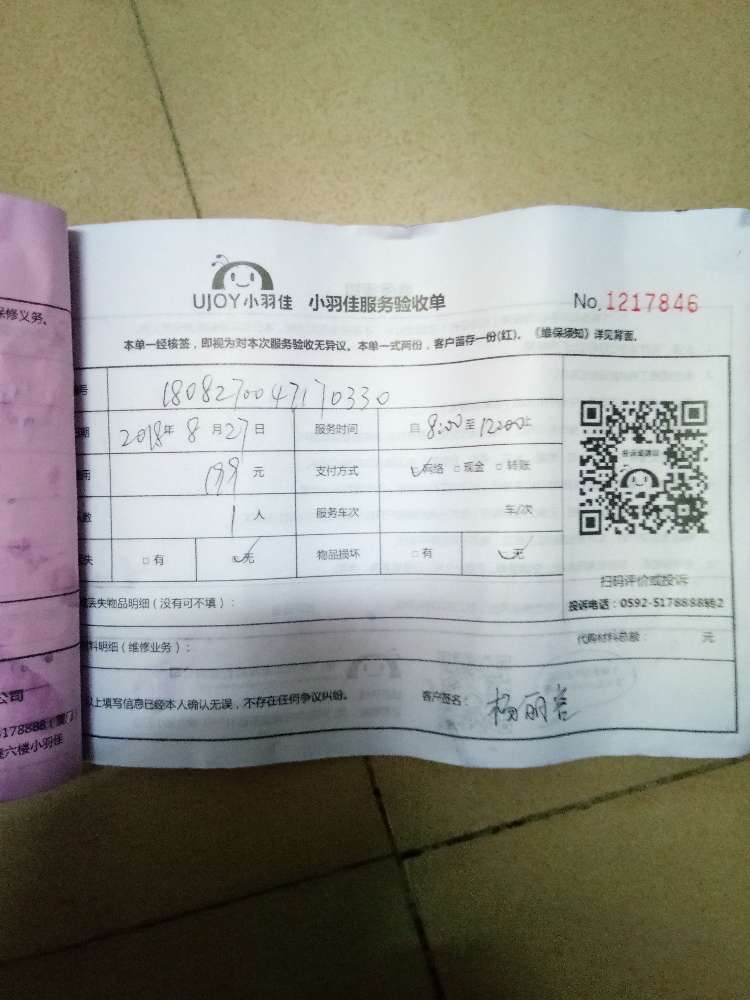 保修义务。
公司
5178888(厦门)
六楼小羽佳
UJOY小羽佳 小羽佳服务验收单 No.1217846
本单一经核签，即视为对本次服务验收无异议。本单一式两份，客户留存一份(红)。《维保须知》详见背面。
号 1808270047170330
期 2018年8月27日 服务时间 自8:00至12:00止
用 199元 支付方式 网络 □现金 □转账
数 1人 服务车次 车/次
失 □有 无 物品损坏 □有 无
扫码评价或投诉
投诉电话：0592-5178888转2
丢失物品明细（没有可不填）：
料明细（维修业务）： 代购材料总额： 元
以上填写信息已经本人确认无误，不存在任何争议纠纷。 客户签名： 杨丽